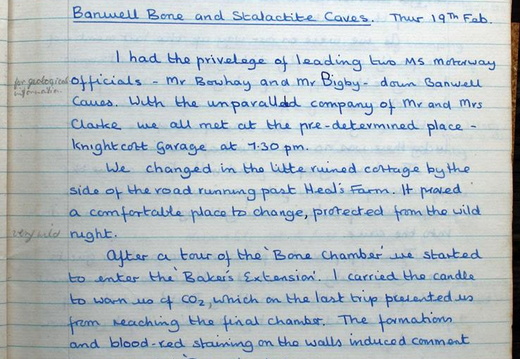 Banwell Bone and Stalactite Caves. Thur 19TH Feb.
I had the privelege of leading two M5 motorway
for geological
information.
officials - Mr Bowhay and Mr Bigby - down Banwell
Caves. With the unparalled company of Mr and Mrs
Clarke we all met at the pre-determined place -
Knightcott Garage at 7.30 pm.
We changed in the litte ruined cottage by the
side of the road running past Heal's Farm. It proved
a comfortable place to change, protected from the wild
very wild
night.
After a tour of the 'Bone Chamber' we started
to enter the 'Baker's Extension'. I carried the candle
to warn us of CO2, which on the last trip prevented us
from reaching the final chamber. The formations
and blood-red staining on the walls induced comment